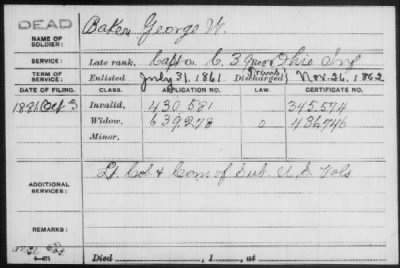 DEAD
NAME OF SOLDIER: Baker George W.
SERVICE: Late rank, Capt Co. C. 3 Ohio Inf
TERM OF SERVICE: Enlisted July 31, 1861 Discharged Nov. 26, 1862
DATE OF FILING. CLASS. APPLICATION NO. LAW. CERTIFICATE NO.
Invalid, 430.581 345.574
1891 Oct 3 Widow, 639.278 436.746
Minor.
ADDITIONAL SERVICES: Lt Col & Com of Sub. U.S. Vols
REMARKS:
6—671 Died , 1 , at